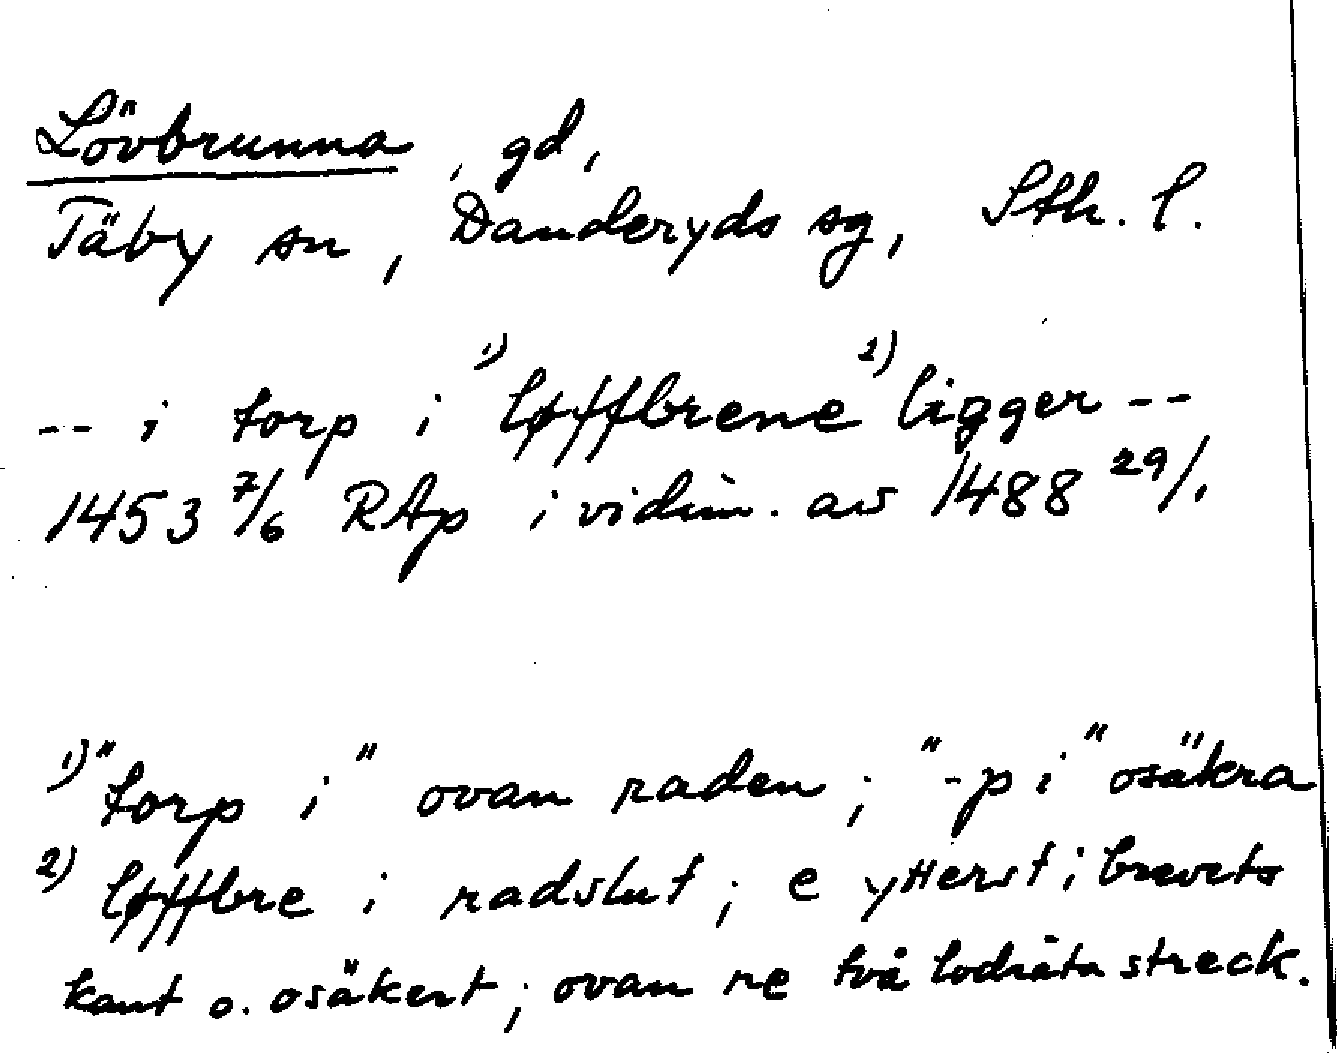 Lövbrunna, gd,
Täby sn, Danderyds sg, Sth. l.
-- i torp i 1) løffbrene 2) ligger --
1453 7/6 RAp i vidim. av 1488 29/1
1) "torp i" ovan raden; "-p i" osäkra
2) løffbre i radslut; e ytterst i brevets
kant o. osäkert; ovan re två lodräta streck.